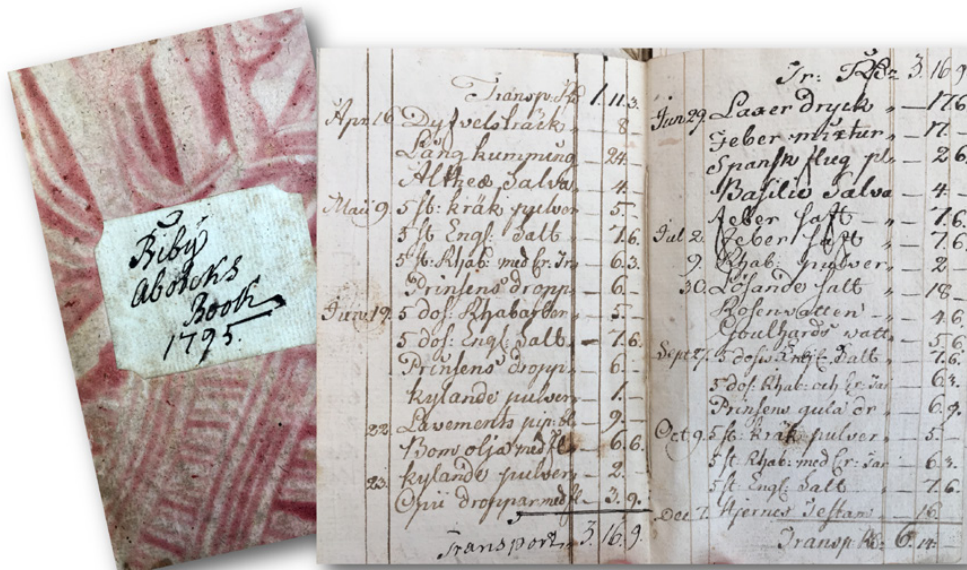 Biby
Abotеks
Book
1795.
Transp: Rd 1. 11. 3.
Apr. 16 Dyfvelsträck, — 8 —
Lång kumming — 24. —
Althea Salva — 4. —
Maii 9. 5 st: kräk pulver — 5. —
5 st Engl: Salt — 7.6.
5 st. Rhab: med Cr: Tr: — 6.3.
Prinsens dropp: — 6. —
Junii 19. 5 dos: Rhabarber — 5. —
5 dos: Engl: Salt — 7.6.
Prinsens dropp: — 6. —
kylande pulver — 1. —
22. Lavements pip: — 9. —
Bomolja med fl: — 6.6.
23. kylande pulver — 2. —
Opii droppar med fl — 3. 9.
Transport 3. 16. 9.
Tr: Rd 3. 16. 9
Jun 29. Laxer dryck — 17.6
Feber mixtur — 17. —
Spansk flug pl — 2 6
Basilic Salva — 4 —
Feber saft — 7.6.
Jul 2. Feber saft — 7.6
9. Rhab: pulver — 2 —
30. Lösande salt — 18 —
Rosenvatten — 4 6.
Goulhards watt — 5 6.
Sept 27. 5 dosis Engl: Salt — 7.6.
5 dos: Rhab: och Cr: Tar — 6.3.
Prinsens gula dr — 6. 9.
Oct 9. 5 st: kräk pulver — 5. —
5 st: Rhab: med Cr: Tar — 6 3.
5 st: Engl: Salt — 7.6.
Dec 7. Hjernes Testam — 16.
Transp Rd: 6. 14: —